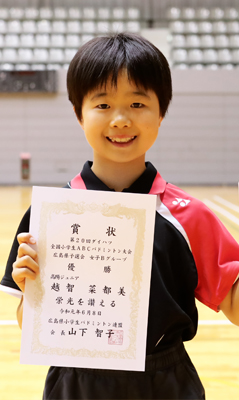 賞状
第20回ダイハツ
全国小学生ABCバドミントン大会
広島県予選会 女子Bグループ
優勝
高陽ジュニア
越智 菜都美
栄光を讃える
令和元年6月8日
広島県小学生バドミントン連盟
会長 山下 智子